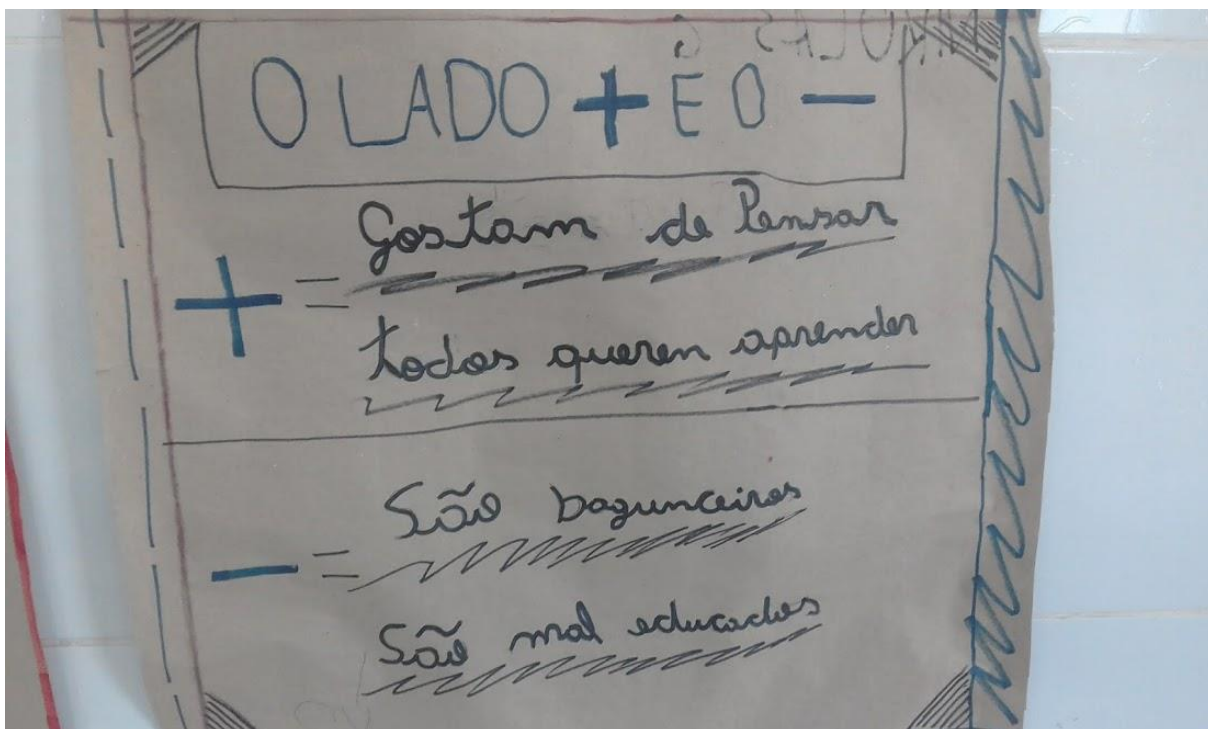 O LADO + E O -
+ = Gostam de Pensar
todos queren aprender
- = São bagunceiros
São mal educados